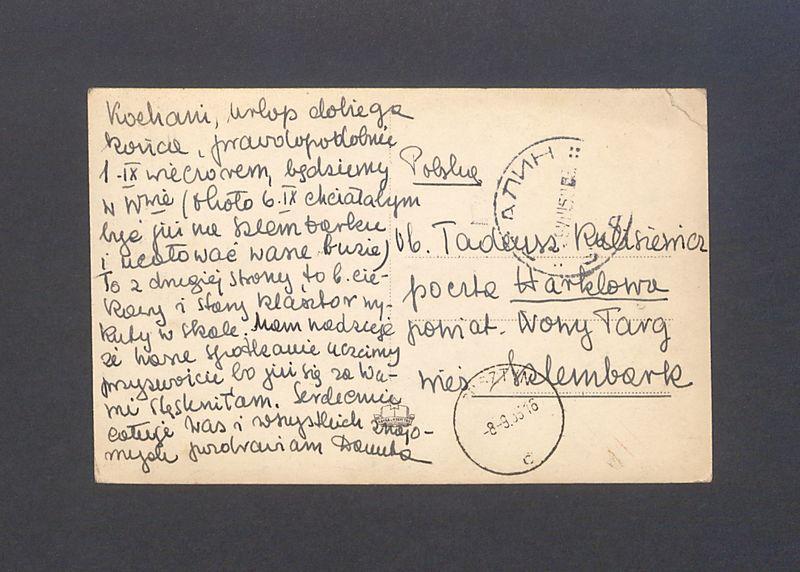 Kochani, urlop dobiega
końca, prawdopodobnie
1-IX wieczorem będziemy
w W-wie (około 6.IX chciałabym
być już na Szlembarku
i ucałować wasze buzie)
To z drugiej strony to b. cie-
kawy i stary klasztor wy-
kuty w skale. Mam nadzieję
że nasze spotkanie uczcimy
przyzwoicie bo już się za Wa-
mi stęskniłam. Serdecznie
całuję Was i wszystkich znajo-
mych pozdrawiam Danuta
Polska
Ob. Tadeusz Kalisiewicz
poczta Harklowa
powiat. Nowy Targ
wieś. Szlembark
-8-9.